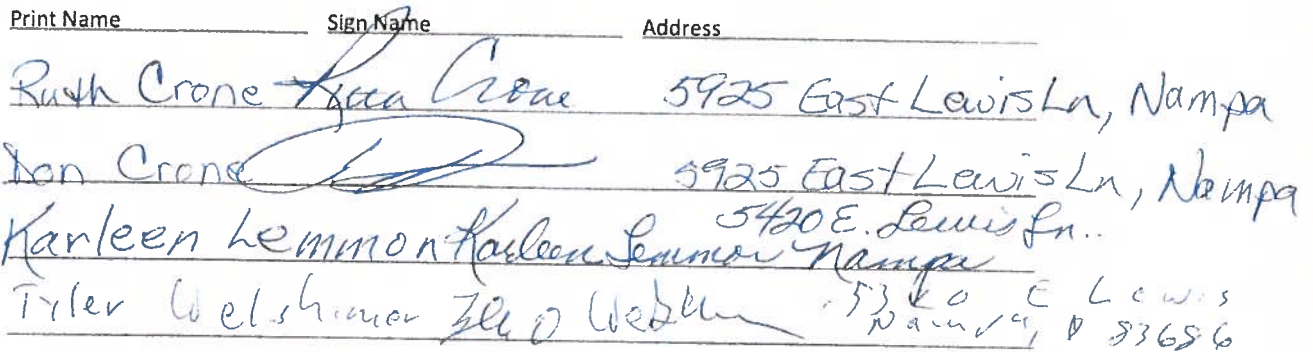 Print Name Sign Name Address
Ruth Crone Ruth Crone 5925 East Lewis Ln, Nampa
Don Crone 5925 East Lewis Ln, Nampa
Karleen Lemmon Karleen Lemmon 5420 E. Lewis Ln.. Nampa
Tyler Welshimer E Lewis
Nampa, 83686